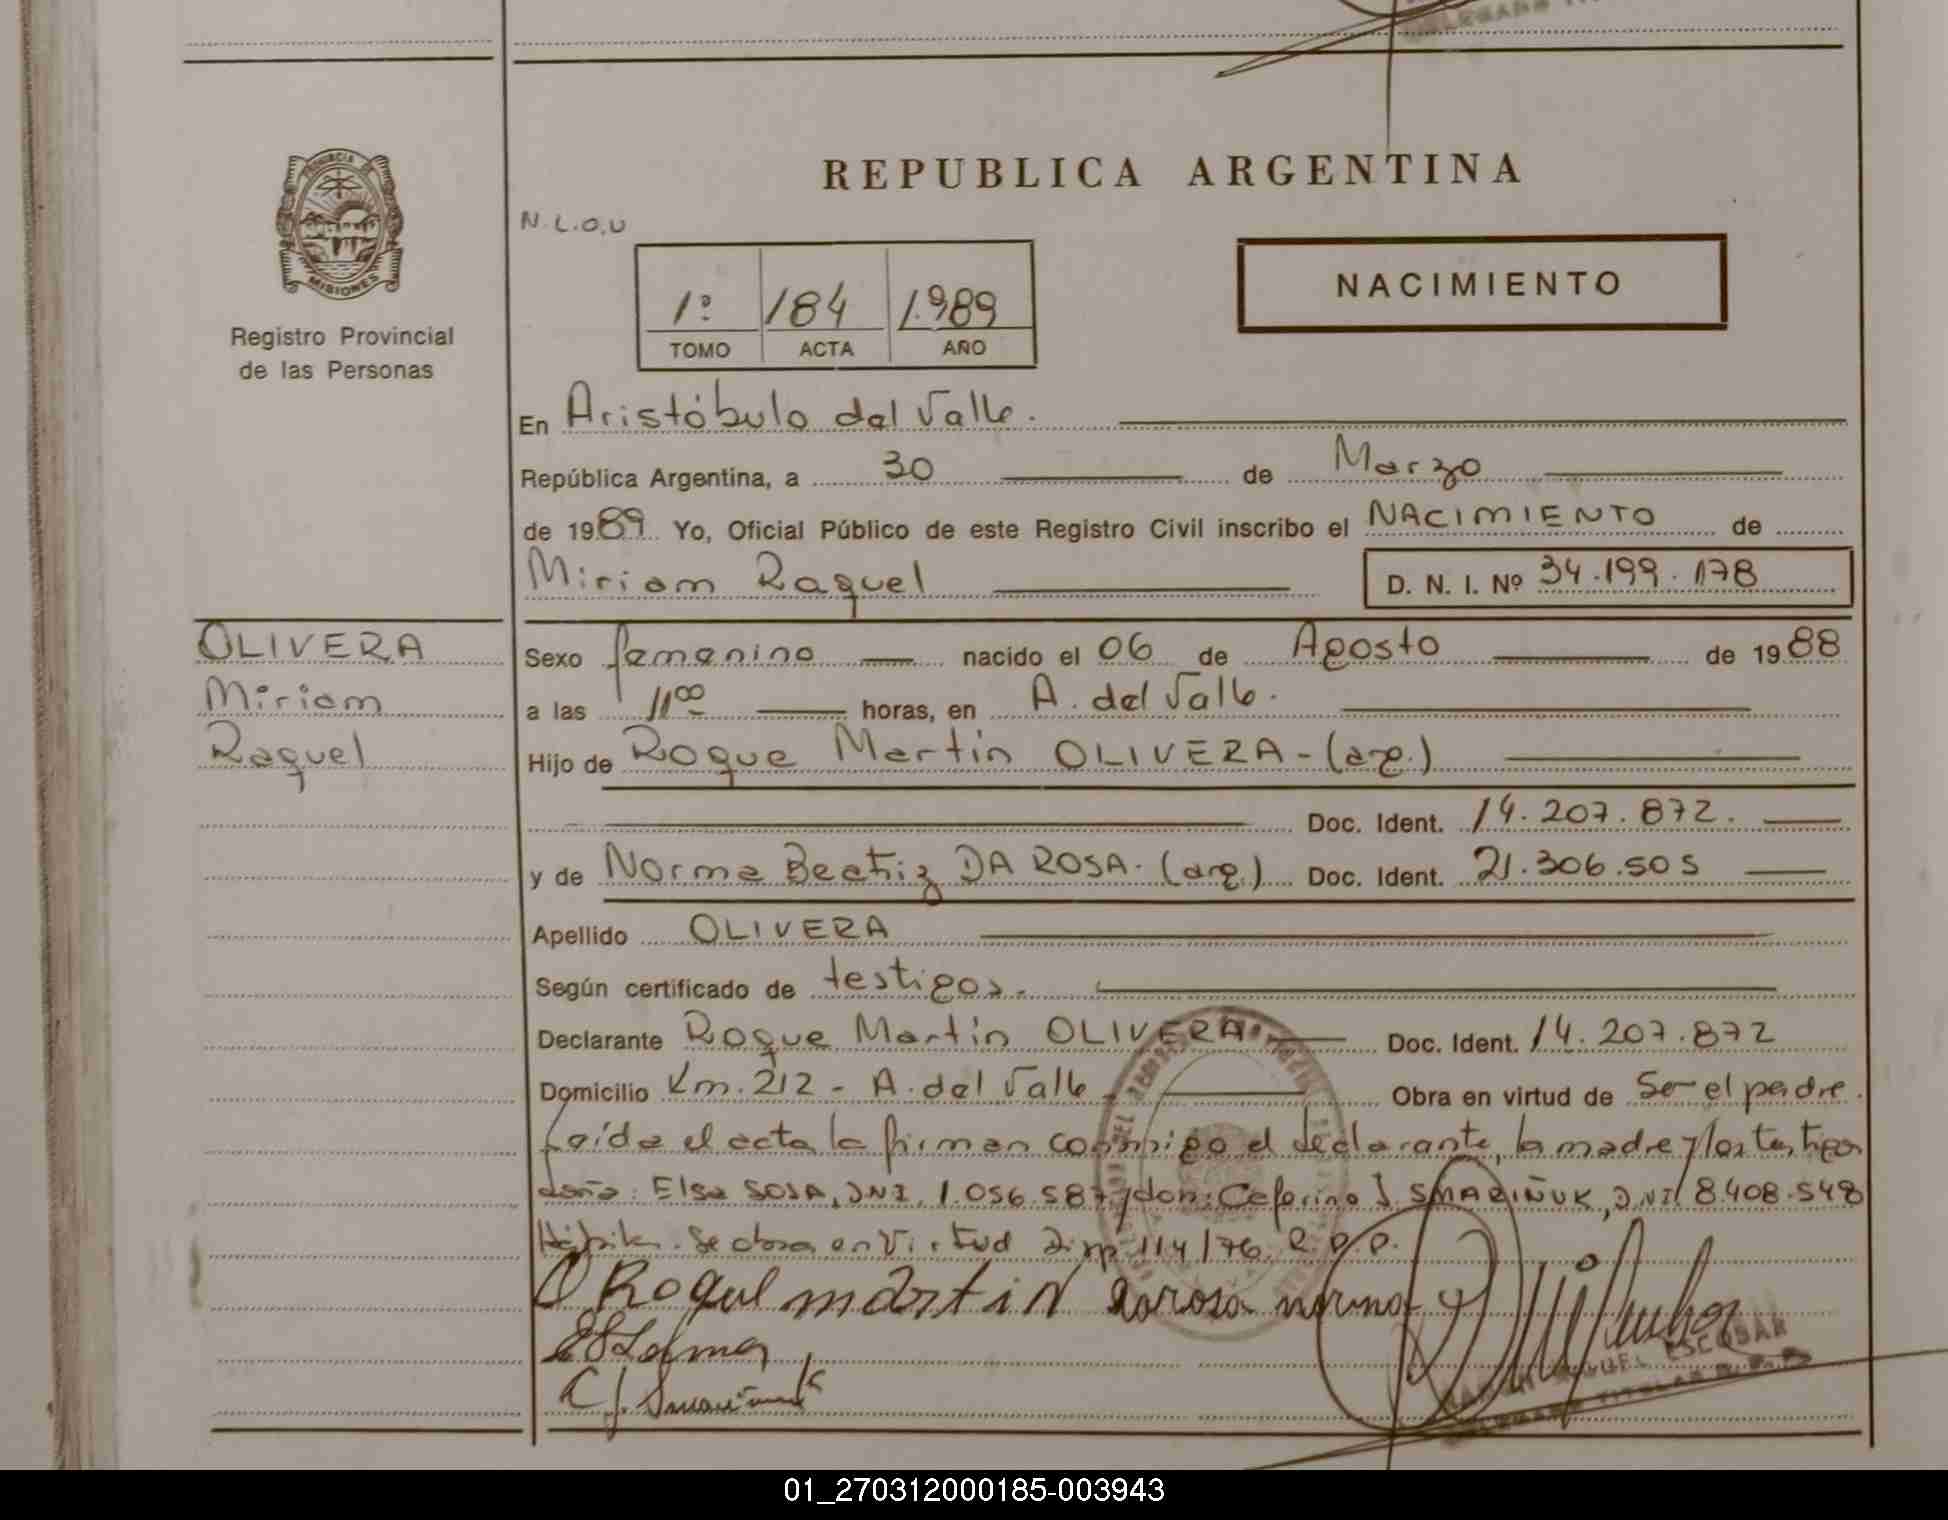 REPUBLICA ARGENTINA
PROVINCIA
MISIONES
Registro Provincial
de las Personas
N.L.O.U
1º 184 1.989
TOMO ACTA AÑO
NACIMIENTO
En Aristóbulo del Valle.
República Argentina, a 30 de Marzo
de 1989 Yo, Oficial Público de este Registro Civil inscribo el NACIMIENTO de
Miriam Raquel D. N. I. Nº 34.199.178
OLIVERA
Miriam
Raquel
Sexo femenino nacido el 06 de Agosto de 1988
a las 11⁰⁰ horas, en A. del Valle.
Hijo de Roque Martín OLIVERA-(arg.)
Doc. Ident. 14.207.872.
y de Norma Beatriz DA ROSA.(arg.) Doc. Ident. 21.306.505
Apellido OLIVERA
Según certificado de testigos.
Declarante Roque Martín OLIVERA Doc. Ident. 14.207.872
Domicilio Km.212 - A. del Valle Obra en virtud de Ser el padre.
Leída el acta la firman conmigo el declarante, la madre y los testigos
doña: Elsa SOSA, D.N.I. 1.056.587 y don: Ceferino J. SMARIÑUK, D.NI 8.408.548
Se obra en Virtud Disp. 114/76. R.P.P.
O Roqul martin darosa norma
C J.
MIGUEL ESCOBAR
DELEGADO TITULAR R.P.P.
01_270312000185-003943